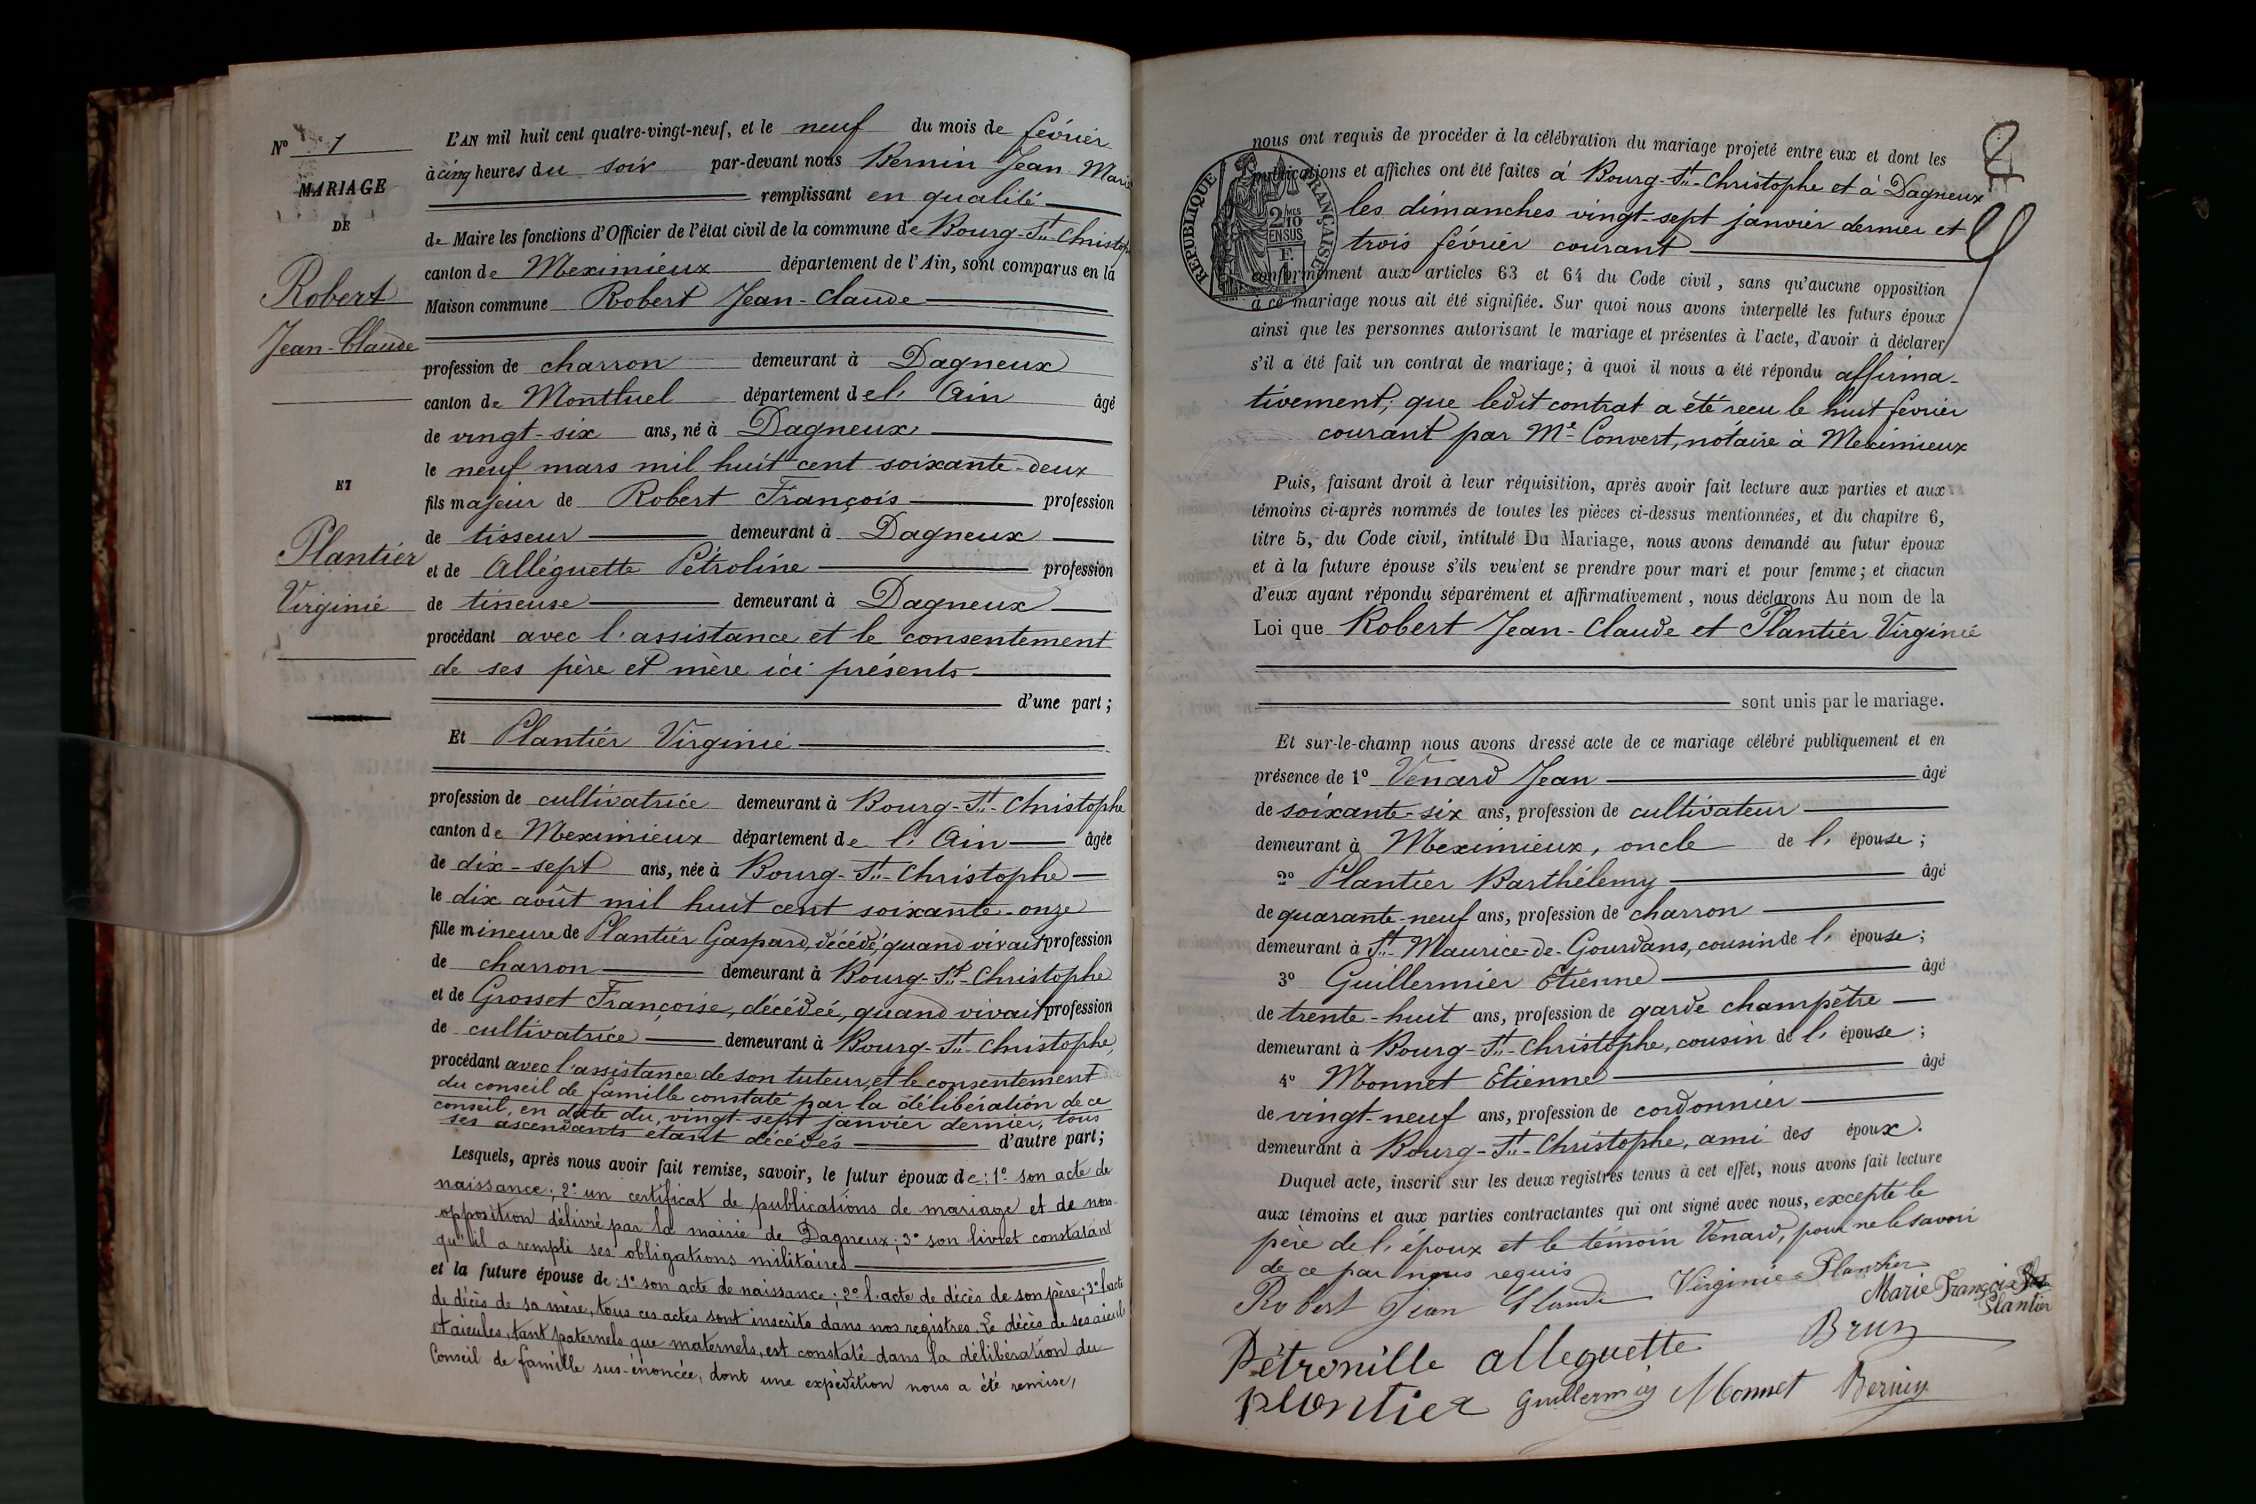 N° 1
MARIAGE
DE
Robert
Jean-Claude
ET
Plantier
Virginie
L'AN mil huit cent quatre-vingt-neuf, et le neuf du mois de février
à cinq heures du soir par-devant nous Bernin Jean Marie
remplissant en qualité
de Maire les fonctions d'Officier de l'état civil de la commune de Bourg-St-Christophe
canton de Meximieux département de l'Ain, sont comparus en la
Maison commune Robert Jean-Claude
profession de charron demeurant à Dagneux
canton de Montluel département de l'Ain âgé
de vingt-six ans, né à Dagneux
le neuf mars mil huit cent soixante-deux
fils majeur de Robert François profession
de tisseur demeurant à Dagneux
et de Alléguette Pétroline profession
de tisseuse demeurant à Dagneux
procédant avec l'assistance et le consentement
de ses père et mère ici présents
d'une part;
Et Plantier Virginie
profession de cultivatrice demeurant à Bourg-St-Christophe
canton de Meximieux département de l'Ain âgée
de dix-sept ans, née à Bourg-St-Christophe
le dix août mil huit cent soixante-onze
fille mineure de Plantier Gaspard, décédé, quand vivait profession
de charron demeurant à Bourg-St-Christophe
et de Grosset Françoise, décédée, quand vivait profession
de cultivatrice demeurant à Bourg-St-Christophe,
procédant avec l'assistance de son tuteur, et le consentement
du conseil de famille constaté par la délibération de ce
conseil, en date du, vingt-sept janvier dernier, tous
ses ascendants étant décédés d'autre part;
Lesquels, après nous avoir fait remise, savoir, le futur époux de: 1° son acte de
naissance; 2° un certificat de publications de mariage et de non-
opposition délivré par la mairie de Dagneux; 3° son livret constatant
qu'il a rempli ses obligations militaires
et la future épouse de: 1° son acte de naissance; 2° l'acte de décès de son père; 3° l'acte
de décès de sa mère, tous ces actes sont inscrits dans nos registres. Le décès de ses aïeuls
et aïeules, tant paternels que maternels, est constaté dans la délibération du
Conseil de famille sus-énoncée, dont une expédition nous a été remise,
2
nous ont requis de procéder à la célébration du mariage projeté entre eux et dont les
publications et affiches ont été faites à Bourg-St-Christophe et à Dagneux
les dimanches vingt-sept janvier dernier et
trois février courant
RÉPUBLIQUE FRANÇAISE
2/10
EN SUS
conformément aux articles 63 et 64 du Code civil, sans qu'aucune opposition
à ce mariage nous ait été signifiée. Sur quoi nous avons interpellé les futurs époux
ainsi que les personnes autorisant le mariage et présentes à l'acte, d'avoir à déclarer
s'il a été fait un contrat de mariage; à quoi il nous a été répondu affirma-
tivement; que ledit contrat a été reçu le huit février
courant par Me Convert, notaire à Meximieux
Puis, faisant droit à leur réquisition, après avoir fait lecture aux parties et aux
témoins ci-après nommés de toutes les pièces ci-dessus mentionnées, et du chapitre 6,
titre 5, du Code civil, intitulé Du Mariage, nous avons demandé au futur époux
et à la future épouse s'ils veulent se prendre pour mari et pour femme; et chacun
d'eux ayant répondu séparément et affirmativement, nous déclarons Au nom de la
Loi que Robert Jean-Claude et Plantier Virginie
sont unis par le mariage.
Et sur-le-champ nous avons dressé acte de ce mariage célébré publiquement et en
présence de 1° Venard Jean âgé
de soixante-six ans, profession de cultivateur
demeurant à Meximieux, oncle de l'épouse;
2° Plantier Barthélemy âgé
de quarante-neuf ans, profession de charron
demeurant à St-Maurice-de-Gourdans, cousin de l'épouse;
3° Guillermier Etienne âgé
de trente-huit ans, profession de garde champêtre
demeurant à Bourg-St-Christophe, cousin de l'épouse;
4° Monnet Etienne âgé
de vingt-neuf ans, profession de cordonnier
demeurant à Bourg-St-Christophe, ami des époux.
Duquel acte, inscrit sur les deux registres tenus à cet effet, nous avons fait lecture
aux témoins et aux parties contractantes qui ont signé avec nous, excepté le
père de l'époux et le témoin Venard, pour ne le savoir
de ce par nous requis
Robert Jean Claude Virginie Plantier
Marie Françoise
Plantier
Pétronille alleguette Brun
plantier Guillermier Monnet Bernin